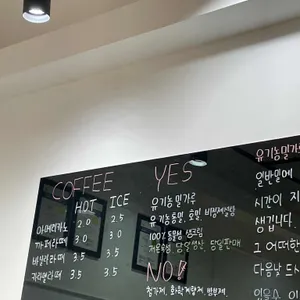 COFFEE
HOT ICE
아메리카노 2.0 2.5
까페라떼 3.0
바닐라라떼 3.5 3.5
카라멜라떼 3.5 3.5
YES
유기농밀가루
유기농통밀, 호밀, 비정제설탕
100% 동물성 생크림
당일생산, 당일판매
NO!
첨가제, 화학개량제, 방부제
유기농밀가
일반밀에
시간이 지
생깁니다
그 어떠한
다움날